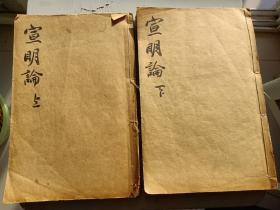 宣明論 上
宣明論 下